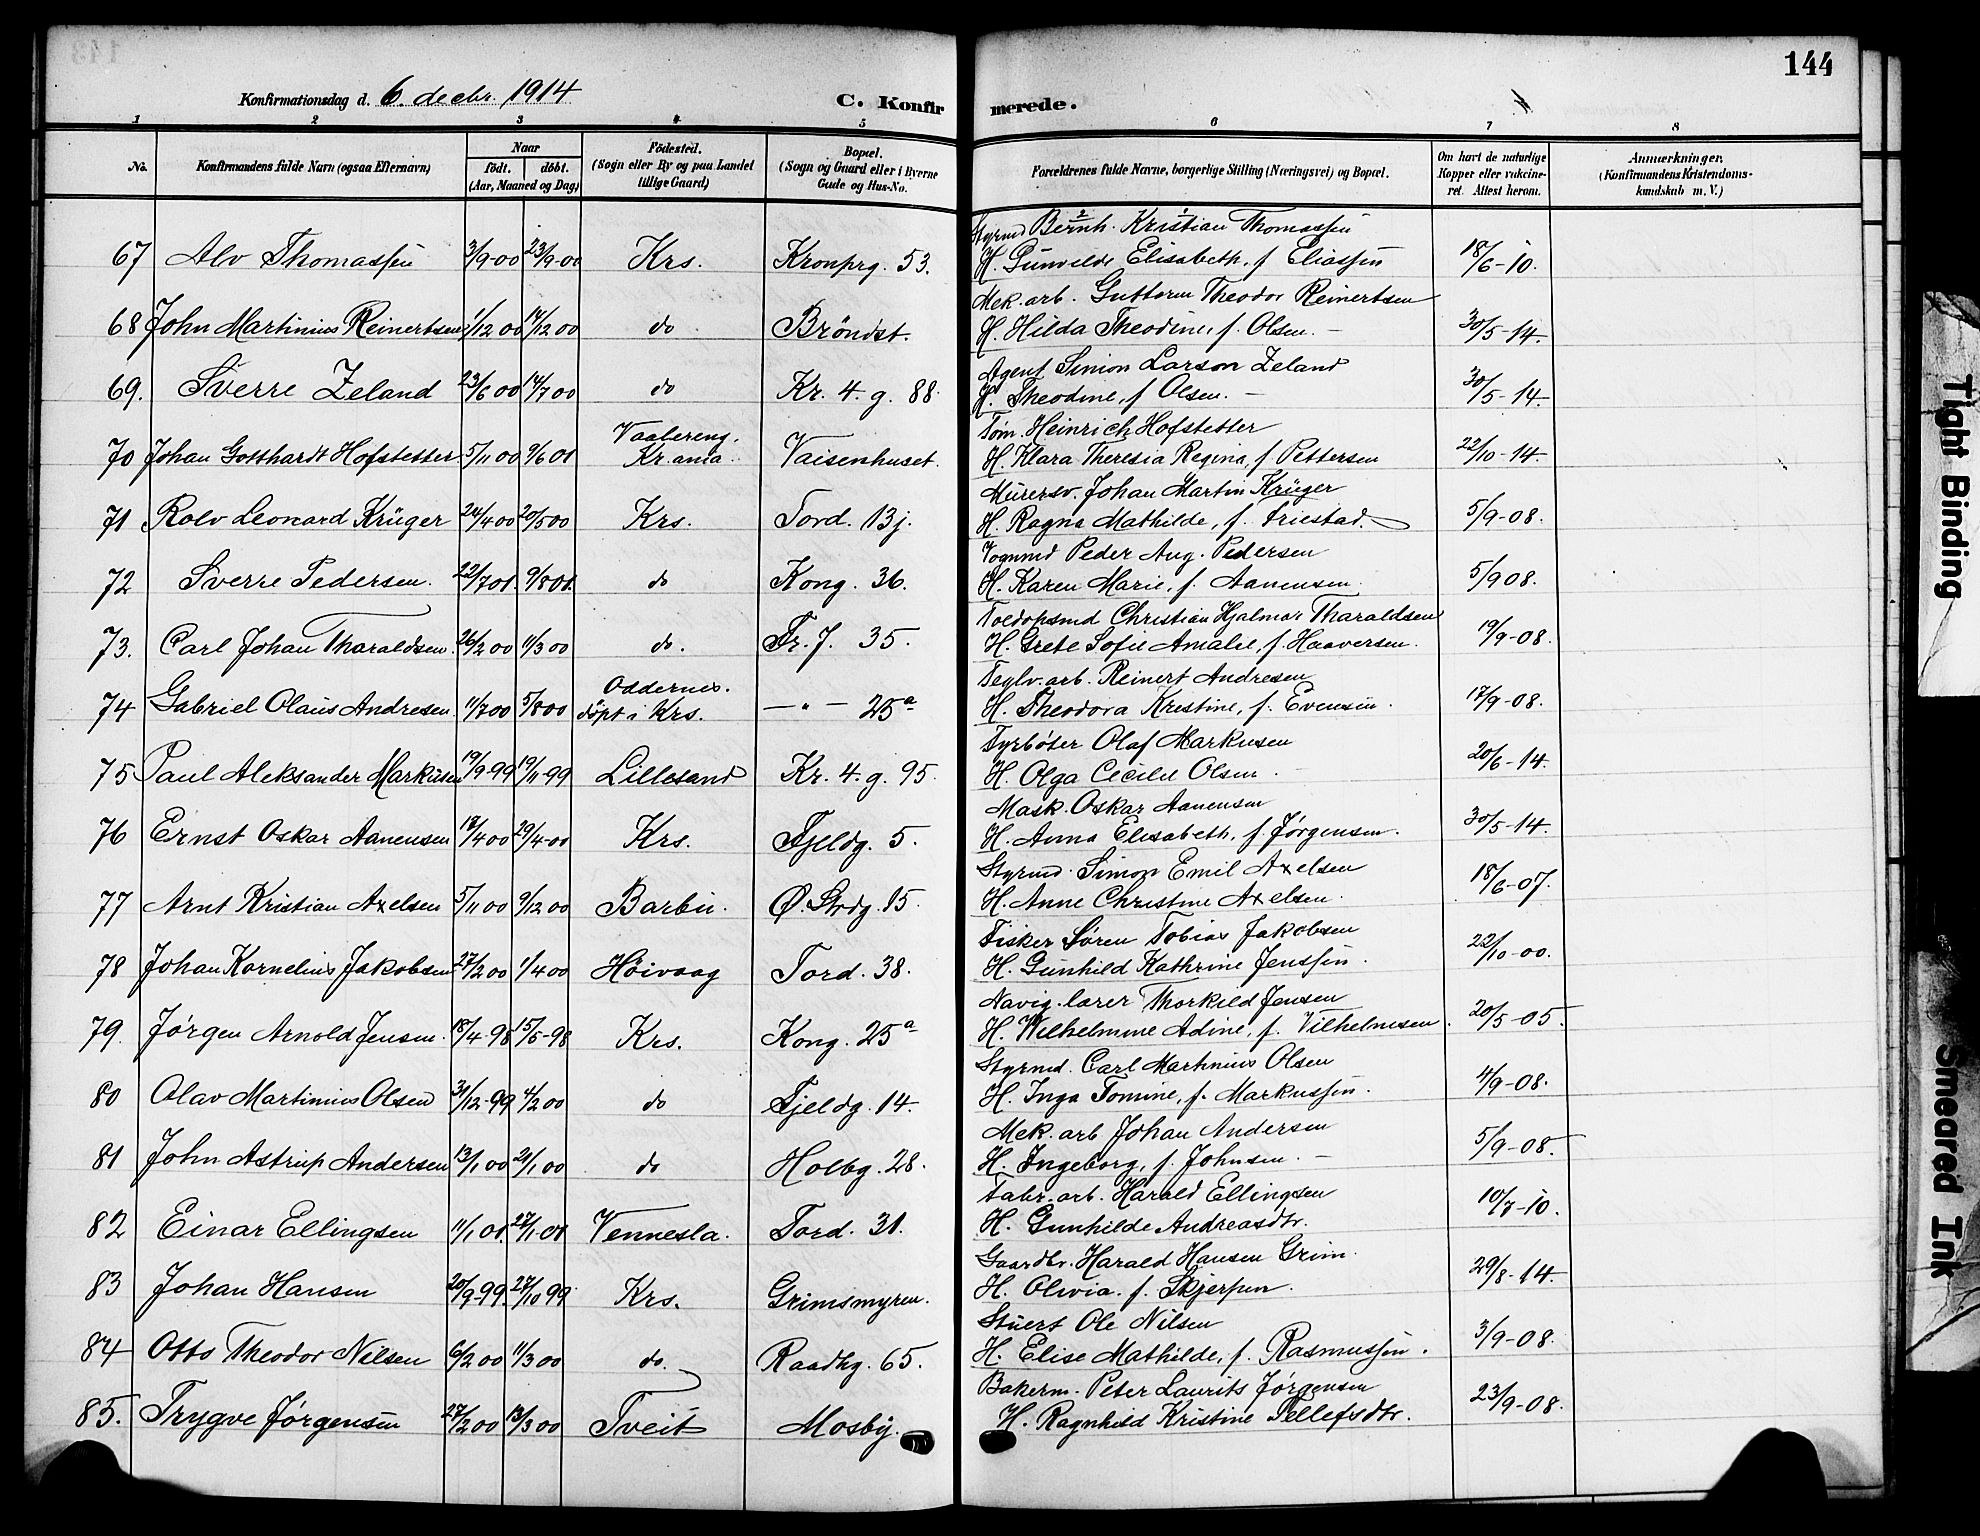 144
Konfirmationsdag d. 6. decbr. 1914
C. Konfirmerede.
1 2 3 4 5 6 7 8
No.
Konfirmandens fulde Navn (ogsaa Efternavn)
Naar
født. døbt.
(Aar, Maaned og Dag)
Fødested.
(Sogn eller By og paa Landet
tillige Gaard)
Bopæl.
(Sogn og Gaard eller i Byerne
Gade og Hus-No.
Forældrenes fulde Navne, borgerlige Stilling (Næringsvei) og Bopæl.
Om havt de naturlige
Kopper eller vakcine-
ret. Attest herom.
Anmærkninger.
(Konfirmandens Kristendoms-
kundskab m. V.)
Styrmd Bernh. Kristian Thomassen
67 Alv Thomassen 3/9-00 23/9-00 Krs. Kronprg. 53. H. Gunvilde Elisabeth, f. Eliassen 18/6-10.
Mek. arb. Guttorm Theodor Reinertsen
68 John Martinius Reinertsen 1/12 00 17/12 00 do Brøndst. H. Hilda Theodine, f. Olsen. 30/5-14.
Agent Simon Larson Zeland
69. Sverre Zeland 23/6 00 14/7 00 do Kr. 4. g. 88. H. Theodine, f Olsen. 30/5-14.
Tøm. Heinrich Hofstetter
70 Johan Gotthardt Hofstetter 5/11 00 9/6 01 Vaalereng. Kr.ania. Vaisenhuset. H. Klara Theresia Regina, f Pettersen 22/10-14.
Murersv. Johan Martin Krüger
71 Rolv Leonard Krüger 24/4 00 20/5 00 Krs. Tord. 13j. H. Ragna Mathilde, f. Friestad. 5/9-08.
Vognmd Peder Aug. Pedersen
72 Sverre Pedersen. 22/7 01. 9/8 01. do Kong. 36. H. Karen Marie, f. Aanensen. 5/9 08.
Toldopsmd Christian Hjalmar Tharaldsen
73. Carl Johan Tharaldsen. 26/2 00 11/3 00 do. Fr. J. 35. H. Grete Sofie Amalie, f. Haaversen. 19/9-08.
Teglv. arb. Reinert Andresen
74 Gabriel Olaus Andresen. 11/7 00 5/8 00 Oddernes. døpt i Krs. — " — 25a H. Theodora Kristine, f. Evensen. 17/9-08.
Fyrbøter Olaf Markusen
75 Paul Aleksander Markusen 19/9-99 19/11-99 Lillesand Kr. 4. g. 95. H. Olga Cecilie Olsen 20/6-14.
Mask. Oskar Aanensen
76 Ernst Oskar Aanensen 17/4 00 29/4-00 Krs. Fjeldg. 5. H. Anna Elisabeth, f. Jørgensen. 30/5-14.
Styrmd. Simon Emil Axelsen
77 Arnt Kristian Axelsen 5/11 00 9/12 00 Barbu. Ø. Strdg. 15. H. Anne Christine Axelsen. 18/6-07.
Fisker Søren Tobias Jakobsen
78 Johan Kornelius Jakobsen 27/2 00 1/4 00 Høivaag Tord. 38. H. Gunhild Kathrine Jenssen. 22/10-00.
Navig. lærer Thorkild Jensen
79. Jørgen Arnold Jensen. 18/4-98 15/5-98 Krs. Kong. 25a H. Wilhelmine Adine, f. Vilhelmsen. 20/5-05.
Styrmd. Carl Martinius Olsen
80 Olav Martinius Olsen 31/12-99 4/2 00 do Fjeldg. 14. H. Inga Tomine, f. Markussen. 4/9-08.
Mek. arb Johan Andersen
81 John Astrup Andersen 13/1 00 21/1 00 do Holbg. 28. H. Ingeborg, f. Johnsen. 5/9-08.
Fabr. arb. Harald Ellingsen
82 Einar Ellingsen 11/1 01. 27/1 01 Vennesla. Tord. 31. H. Gunhilde Andreasdtr. 10/7-10.
Gaardbr. Harald Hansen Grim.
83 Johan Hansen 20/9-99. 27/10 99 Krs. Grimsmyren. H. Olivia. f. Skjerpen. 29/8-14.
Stuert Ole Nilsen
84 Otto Theodor Nilsen 6/2 00 11/3 00 do. Raadhg. 65. H. Elise Mathilde, f. Rasmussen. 3/9-08.
Bakerm. Peter Laurits Jørgensen
85. Trygve Jørgensen 27/2 00 13/3 00 Tveit Mosby. H. Ragnhild Kristine Tellefsdtr. 23/9-08.
Tight Binding
Smeared Ink